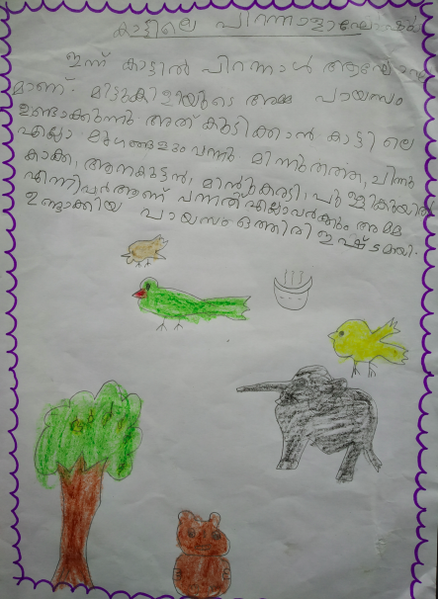 കാട്ടിലെ പിറന്നാളാഘോഷം
ഇന്ന് കാട്ടിൽ പിറന്നാൾ ആഘോഷ
മാണ്. മിട്ടുകിളിയുടെ അമ്മ പായസം
ഉണ്ടാക്കുന്നു അത് കുടിക്കാൻ കാട്ടി ലെ
എല്ലാ മൃഗങ്ങളും വന്നു. മിന്നു തത്ത, ചിന്നു
കാക്ക, ആനകുട്ടൻ, മിന്റുകരടി, പുള്ളികുയിൽ
എന്നിവർ ആണ് വന്നത് എല്ലാവർക്കും അമ്മ
ഉണ്ടാക്കിയ പായസം ഒത്തിരി ഇഷ്ടമായി.